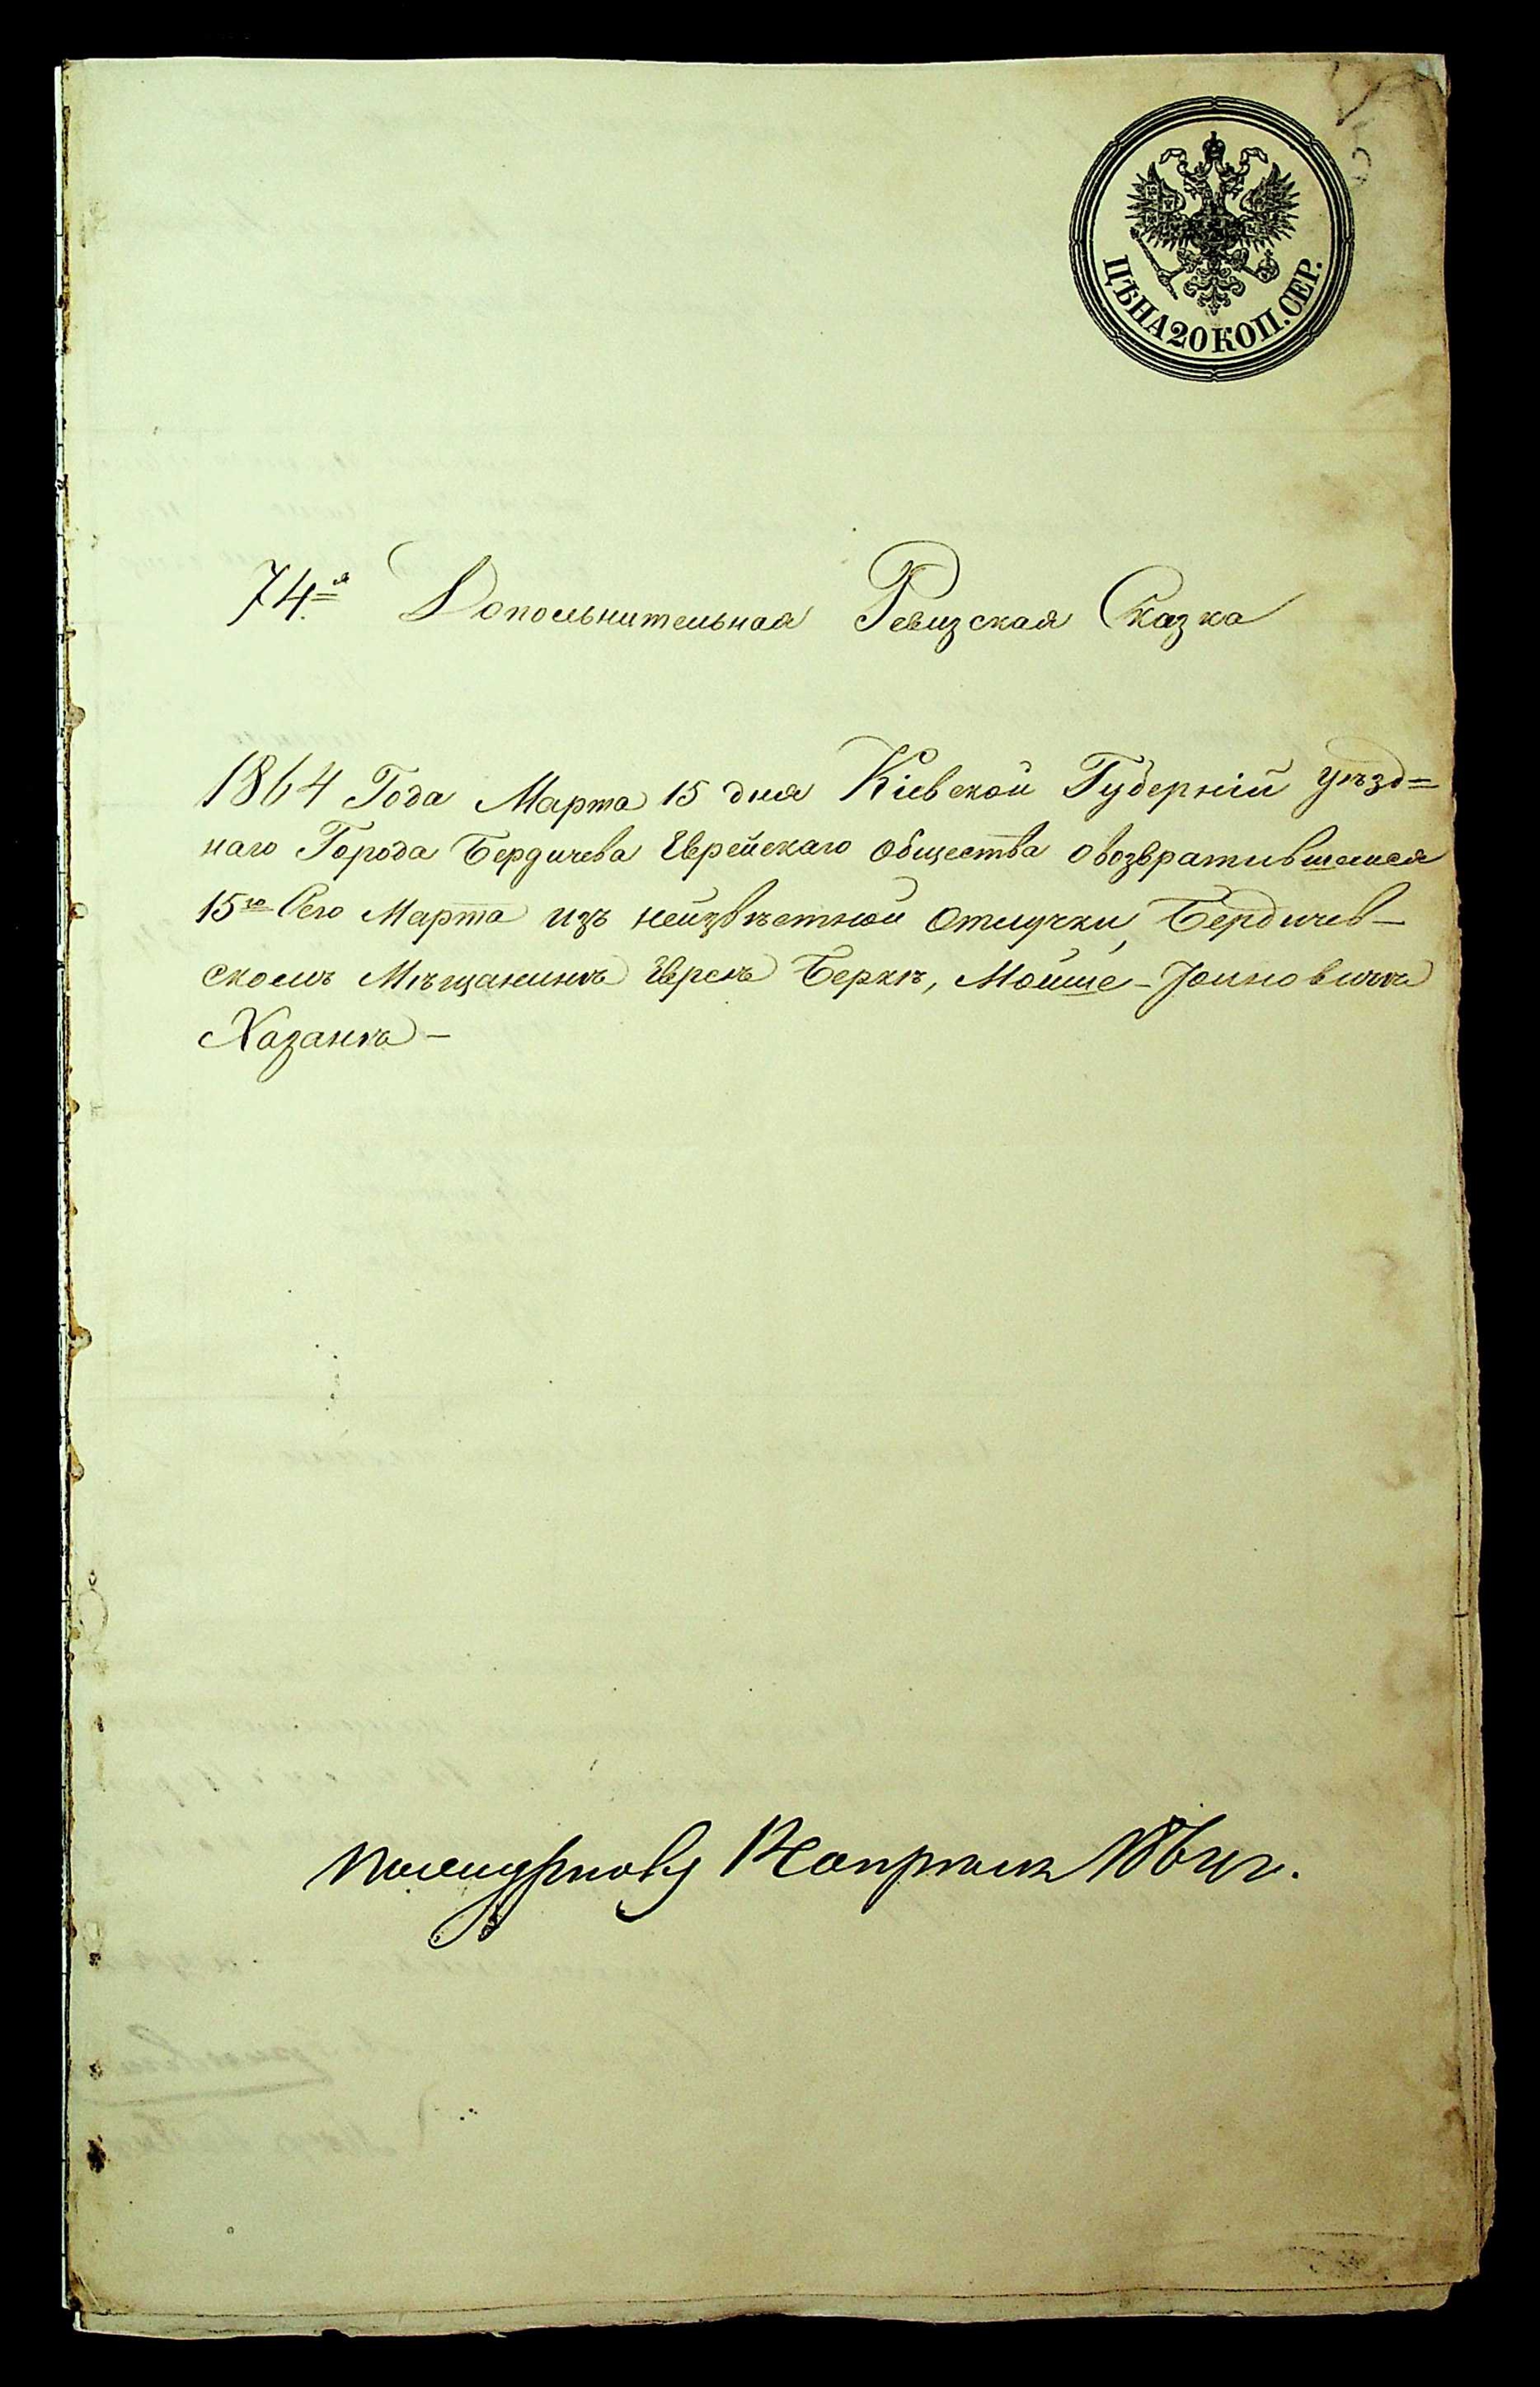 ЦѢНА 20 КОП. СЕР.
74.я Допольнительная Ревизская Сказка
1864 Года Марта 15 дня Кіевской Губерніи уѣзд=
наго Города Бердичева Еврейскаго общества о возвратившемся
15го Сего Марта изъ неизвѣстной отлучки, Бердичев-
скомъ Мѣщанинѣ Евреѣ Беркѣ, Мойше-Іоиновичѣ
Хазанѣ -
апрѣля 1864 г.